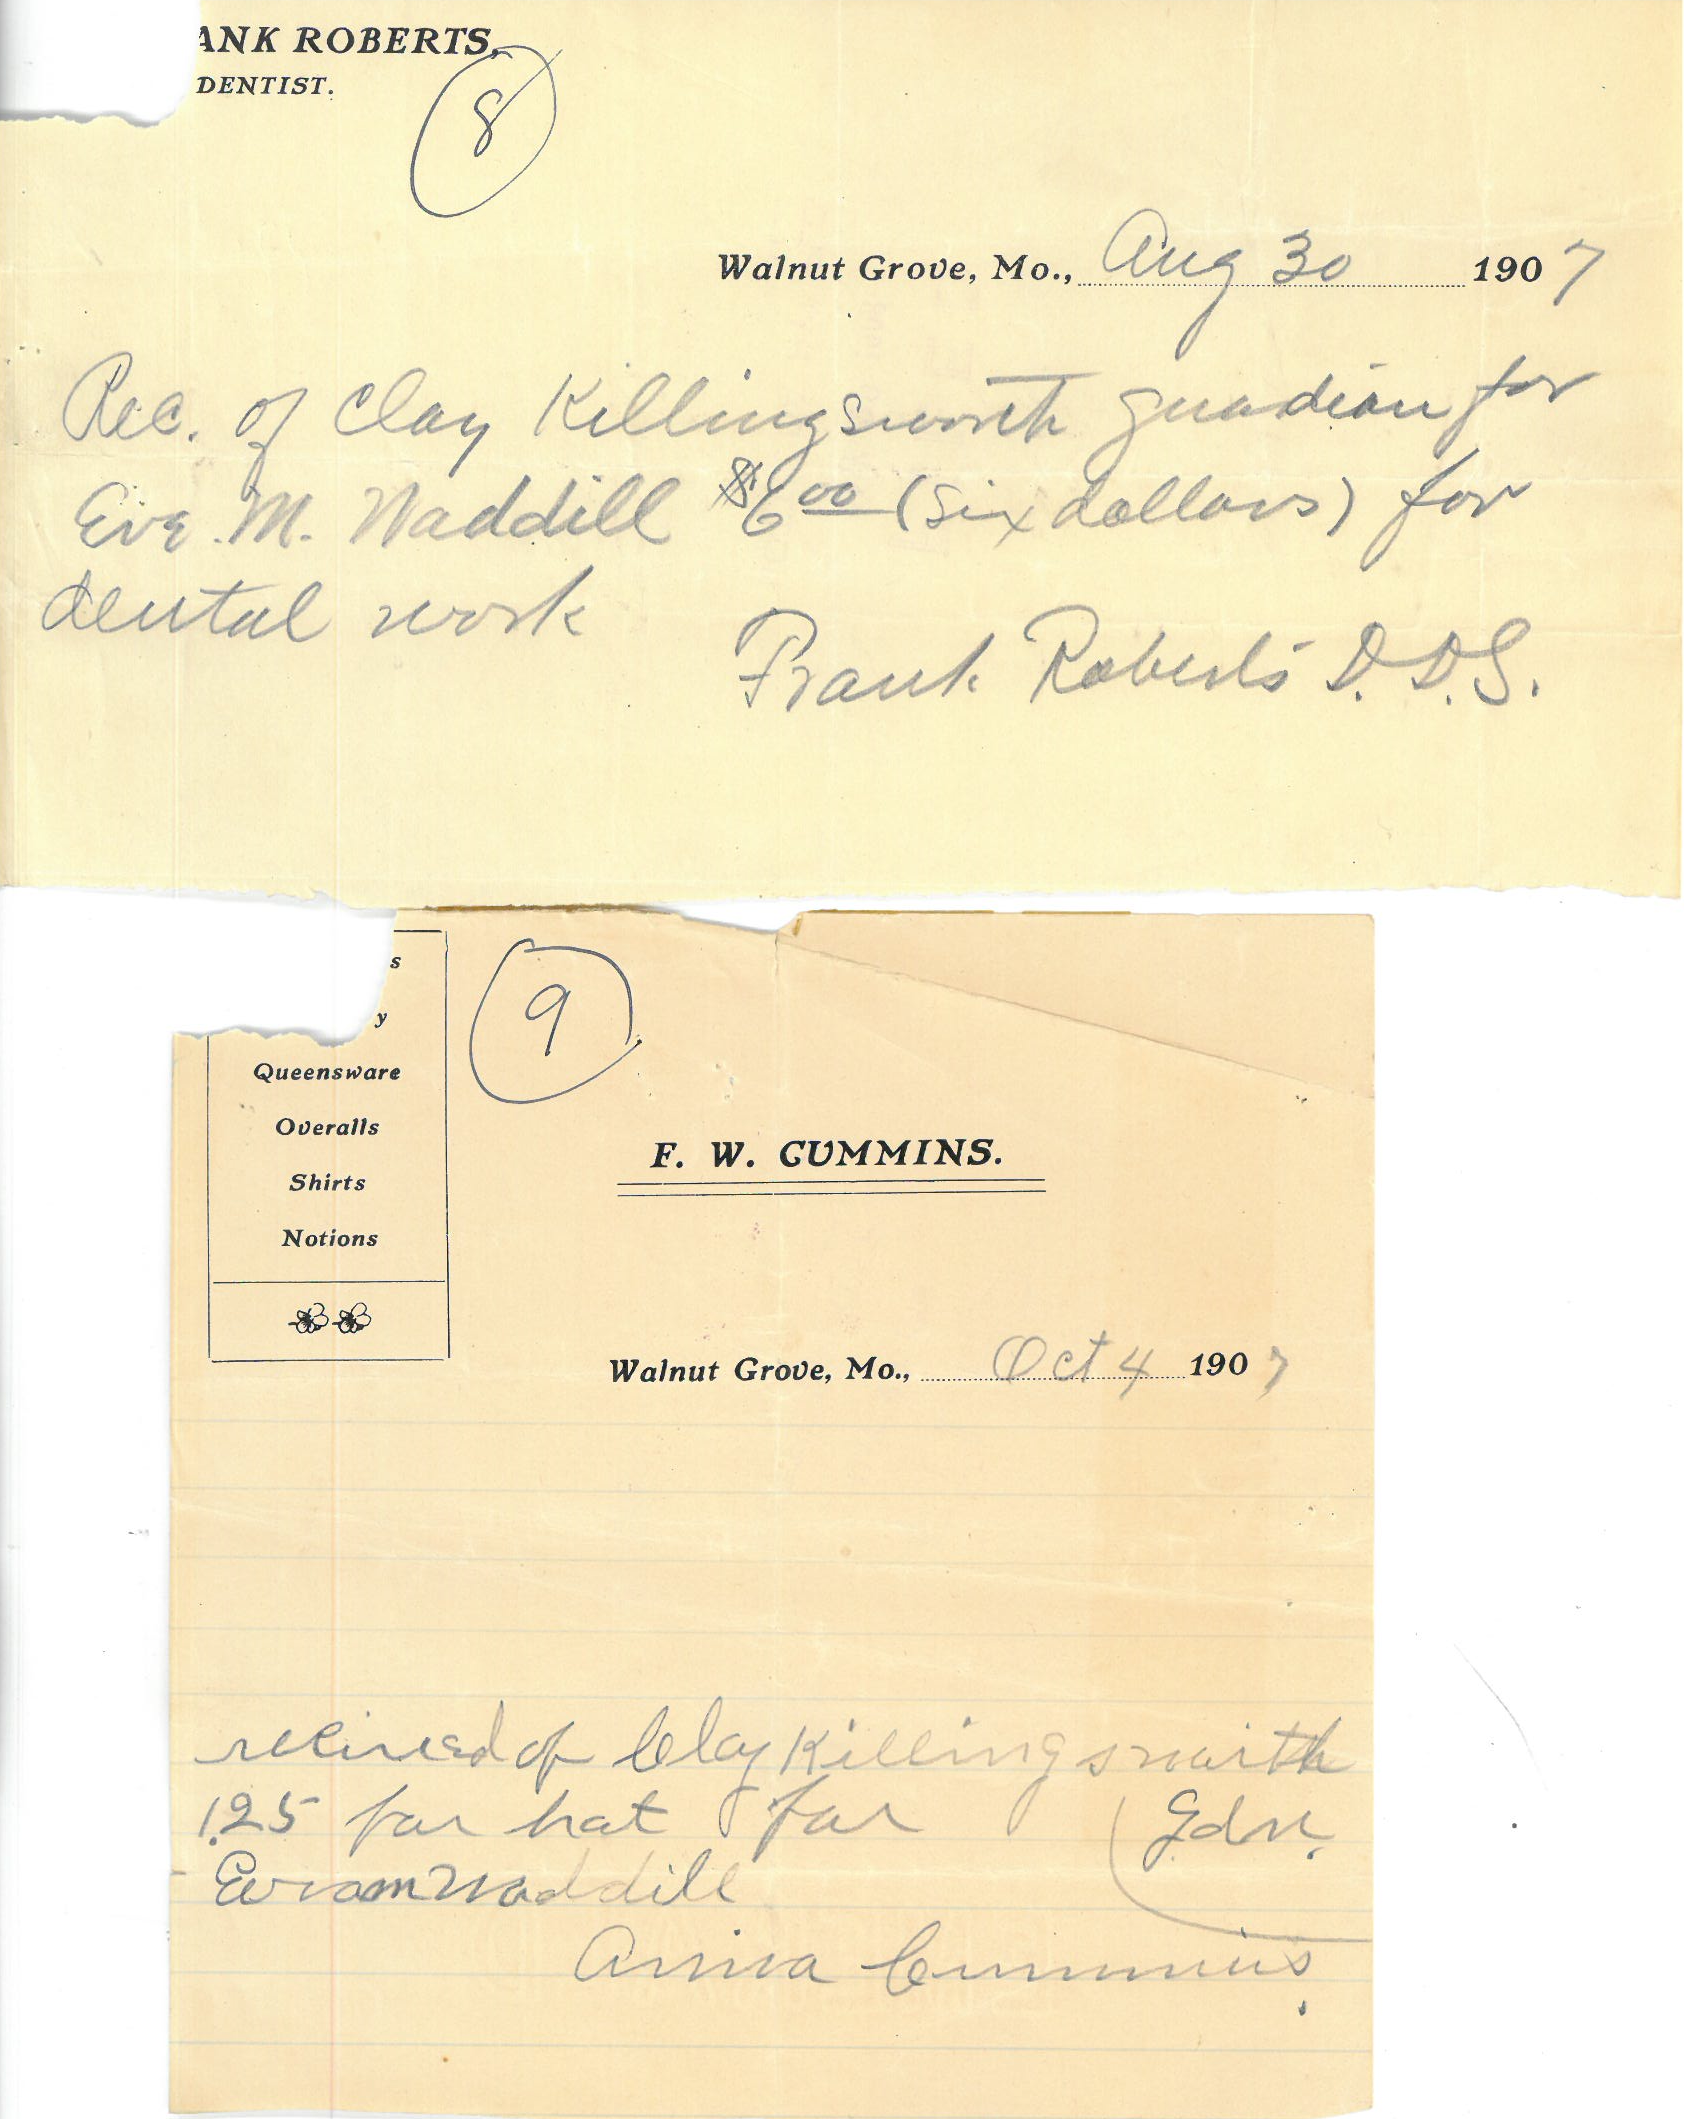 ANK ROBERTS,
DENTIST.
8
Walnut Grove, Mo., Aug 30 1907
Rec. of Clay Killingsworth guadian for
Eva M. Waddill $6 00 (six dollars) for
dental work
Frank Roberts D.D.S.
s
y
Queensware
Overalls
Shirts
Notions
9
F. W. CUMMINS.
Walnut Grove, Mo., Oct 4 1907
recived of Clay Killingsworth
1.25 for hat for Gdn.
Waddill
Anna Cummins